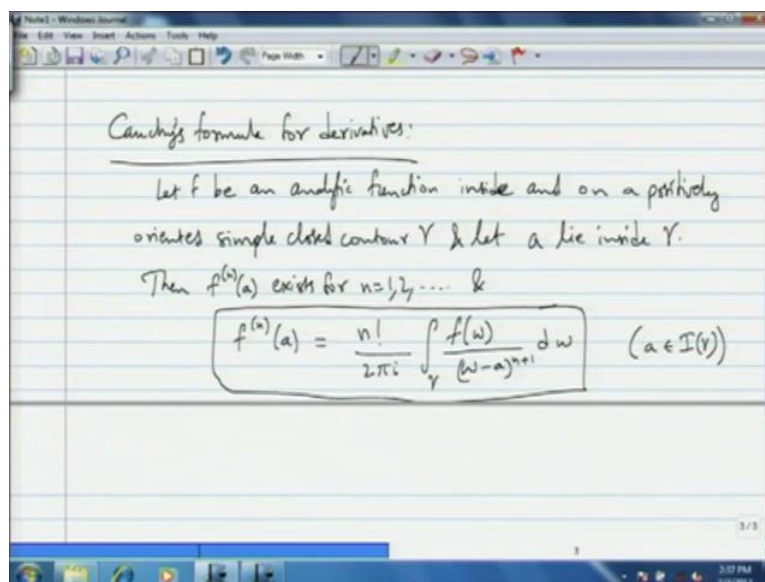 Note1 - Windows Journal
File Edit View Insert Actions Tools Help
Page Width
Cauchy's formula for derivatives:
Let f be an analytic function inside and on a positively
oriented simple closed contour γ & let a lie inside γ.
Then f^(n)(a) exists for n=1,2,.... &
f^(n)(a) = n!/2πi ∫_γ f(w)/(w-a)^(n+1) dw (a ∈ I(γ))
3/3
3
2:57 PM